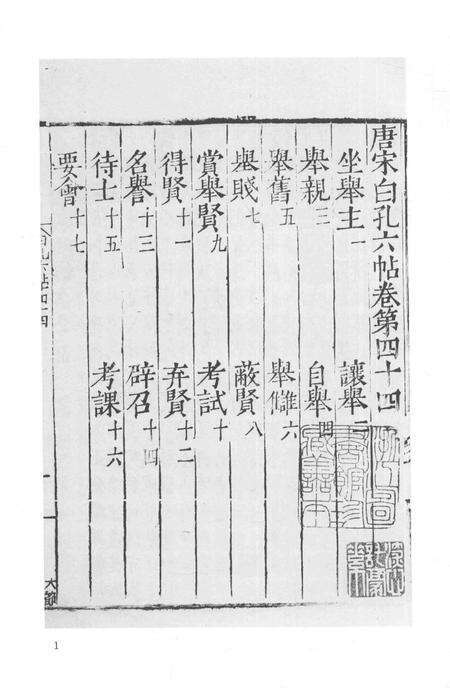 唐宋白孔六帖卷第四十四
坐舉主一 讓舉二
舉親三 自舉四
舉舊五 舉讎六
舉賤七 蔽賢八
賞舉賢九 考試十
得賢十一 弃賢十二
名譽十三 辟召十四
待士十五 考課十六
要會十七
白孔六帖四十四
1